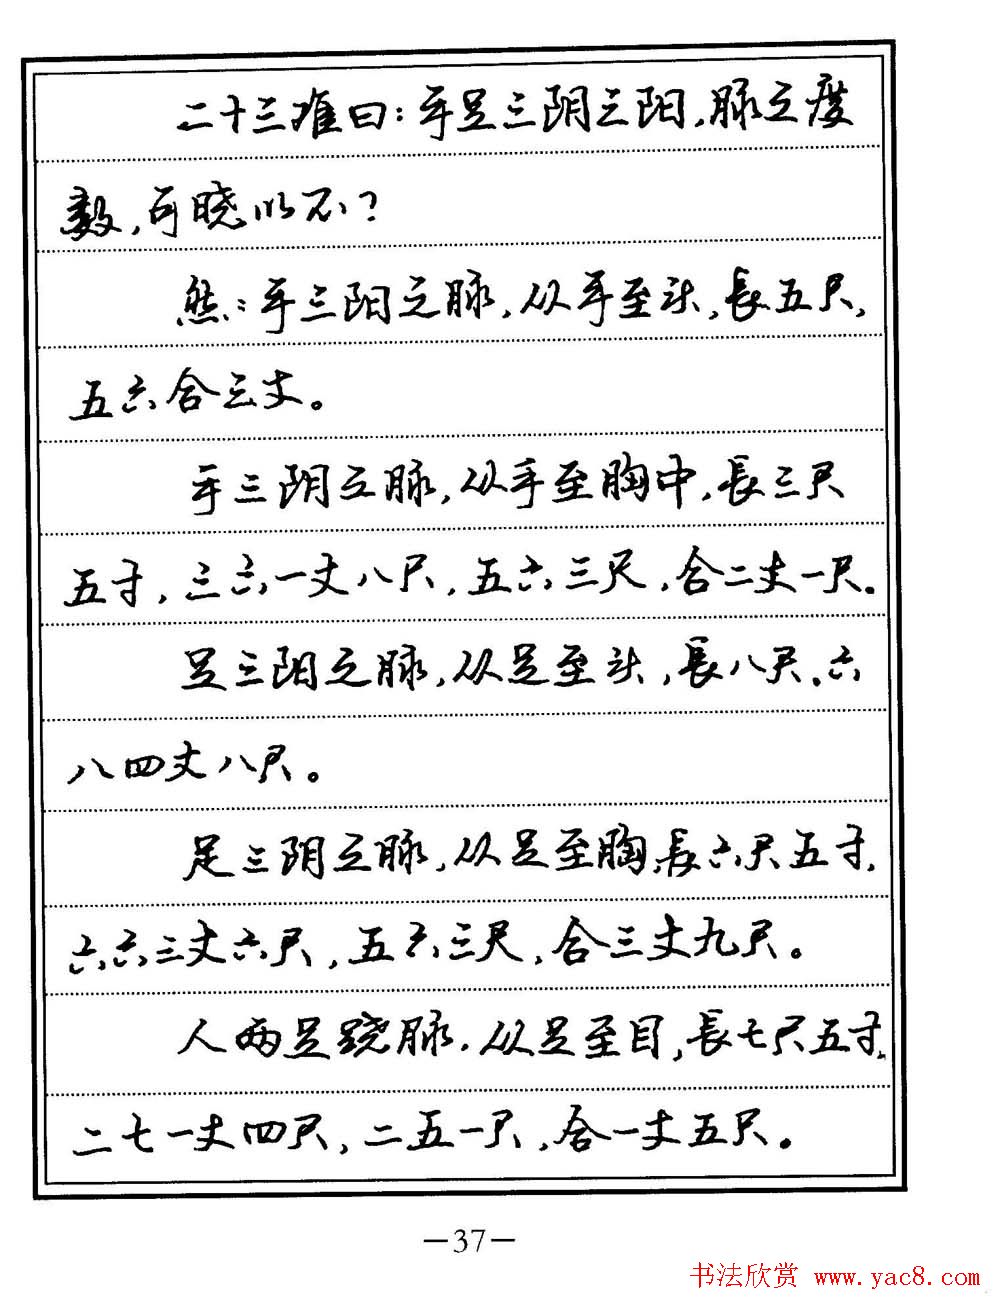 二十三难曰：手足三阴三阳，脉之度
数，可晓以不？
然：手三阳之脉，从手至头，長五尺，
五六合三丈。
手三阴之脉，从手至胸中，長三尺
五寸，三六一丈八尺，五六三尺，合二丈一尺。
足三阳之脉，从足至头，長八尺，六
八四丈八尺。
足三阴之脉，从足至胸，長六尺五寸，
六六三丈六尺，五六三尺，合三丈九尺。
人两足跷脉，从足至目，長七尺五寸，
二七一丈四尺，二五一尺，合一丈五尺。
—37—
书法欣赏 www.yac8.com